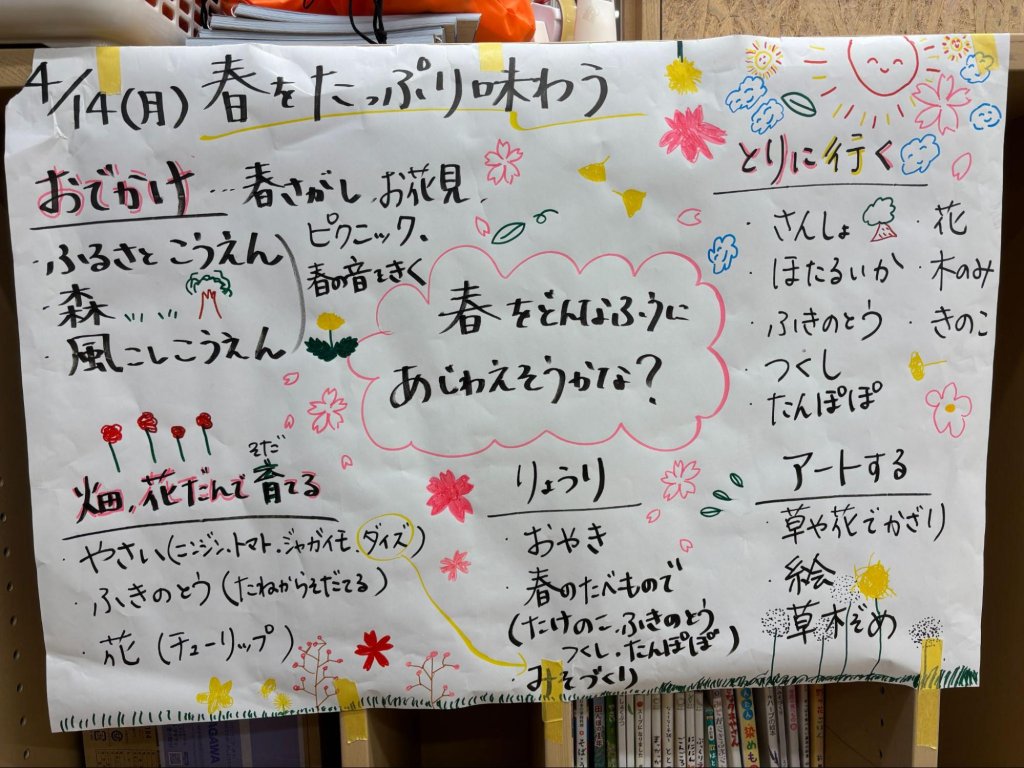 4/14(月) 春をたっぷり味わう
おでかけ…春さがし、お花見、
ピクニック、
春の音をきく
・ふるさとこうえん
・森
・風こしこうえん
春をどんなふうに
あじわえそうかな?
とりに行く
・さんしょ
・ほたるいか
・ふきのとう
・つくし
・たんぽぽ
・花
・木のみ
・きのこ
そだ
畑、花だんで育てる
・やさい(ニンジン、トマト、ジャガイモ、ダイズ)
・ふきのとう(たねからそだてる)
・花(チューリップ)
りょうり
・おやき
・春のたべもので
(たけのこ、ふきのとう
つくし、たんぽぽ)
・みそづくり
アートする
・草や花でかざり
・絵
・草木ぞめ